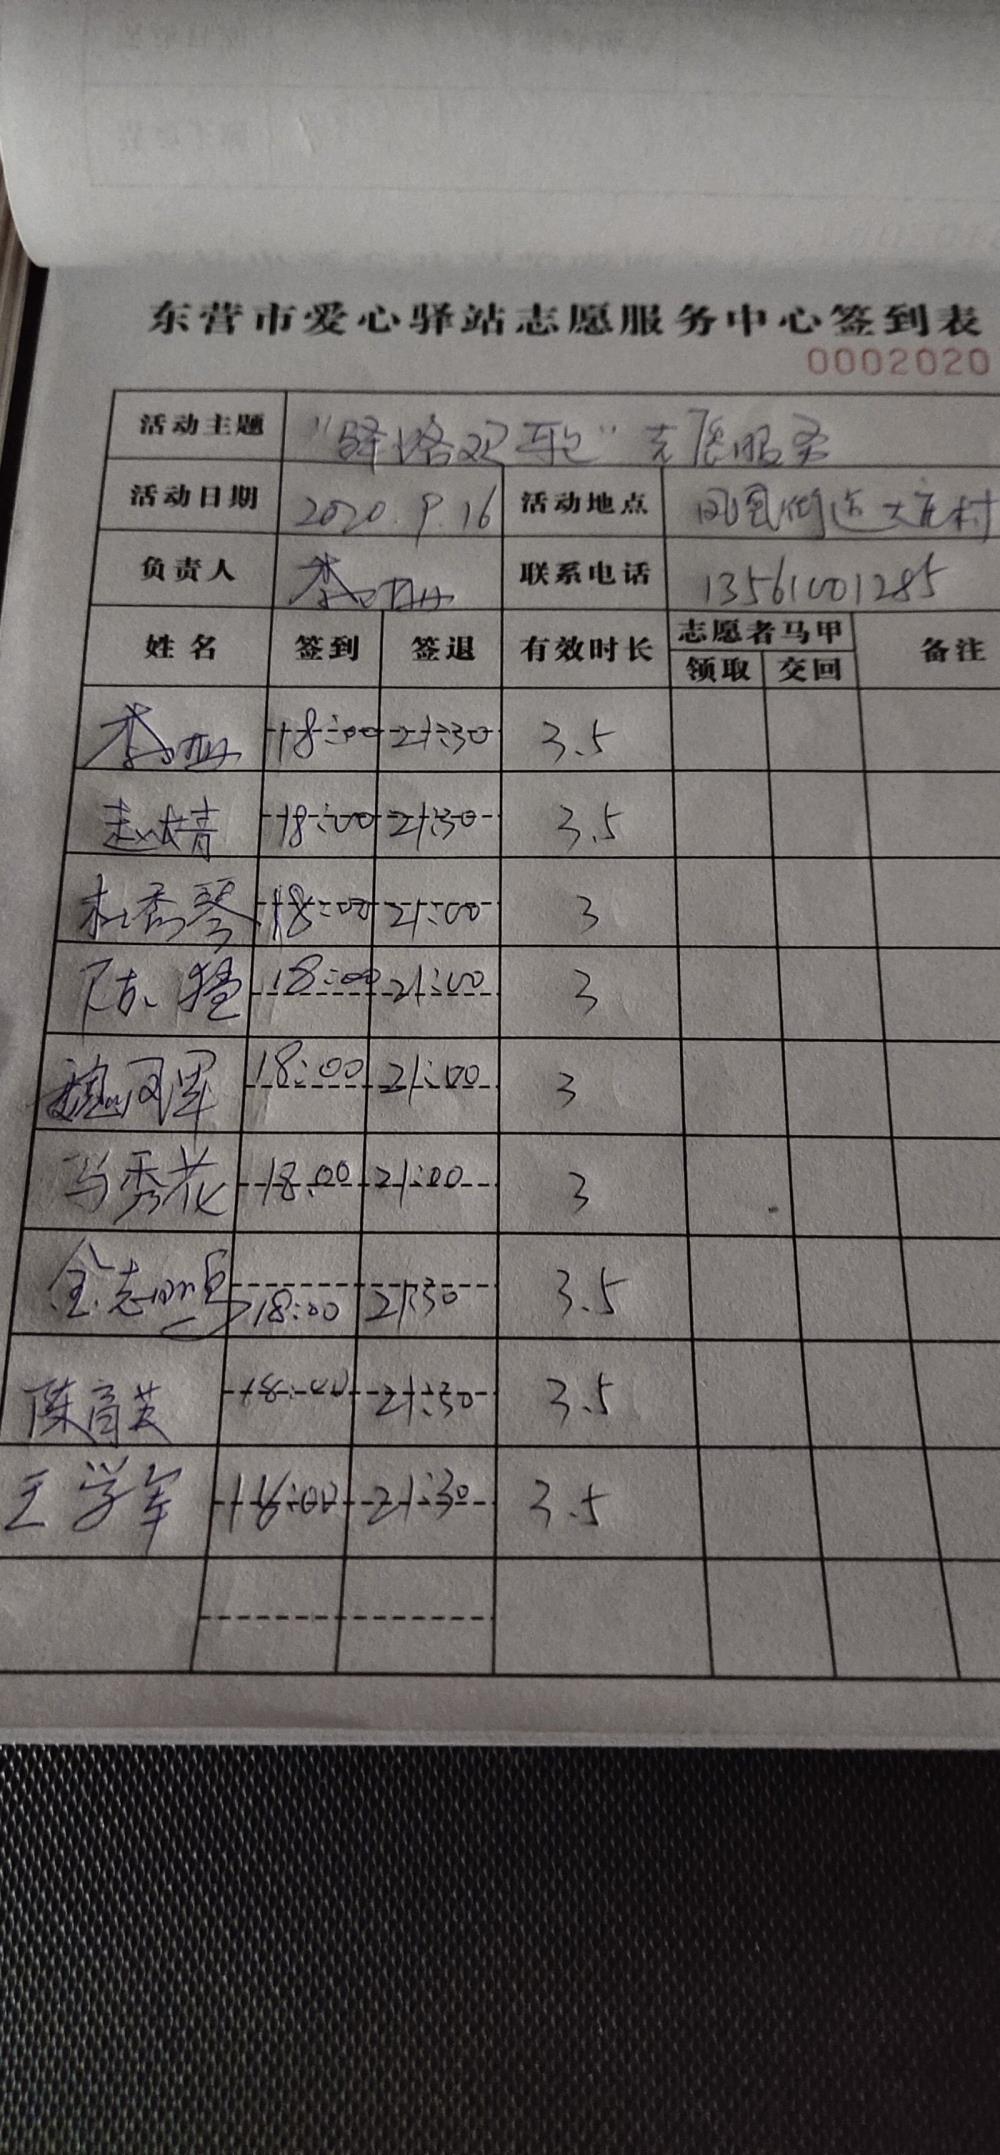 东营市爱心驿站志愿服务中心签到表
0002020
活动主题 "驿路欢歌"志愿服务
活动日期 2020.9.16 活动地点 凤凰街道大庄村
负责人 李 联系电话 13561001285
姓名 签到 签退 有效时长 志愿者马甲 备注
领取 交回
李 18:00 21:30 3.5
赵婧 18:00 21:30 3.5
杜秀琴 18:00 21:00 3
陈猛 18:00 21:00 3
18:00 21:00 3
马秀花 18:00 21:00 3
金志 18:00 21:30 3.5
陈育芸 18:00 21:30 3.5
王学军 18:00 21:30 3.5